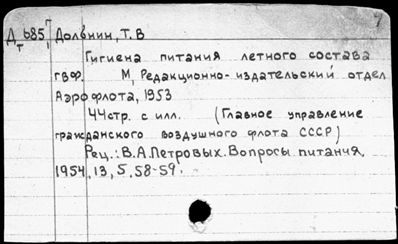 7
Д 685, Долбнин, Т. В
т Гигиена питания летного состава
ГВФ. М, Редакционно-издательский отдел
Аэрофлота, 1953
44стр. с илл. (Главное управление
гражданского воздушного флота СССР)
Рец.: В.А.Петровых. Вопросы питания,
1954, 13, 5, 58-59.